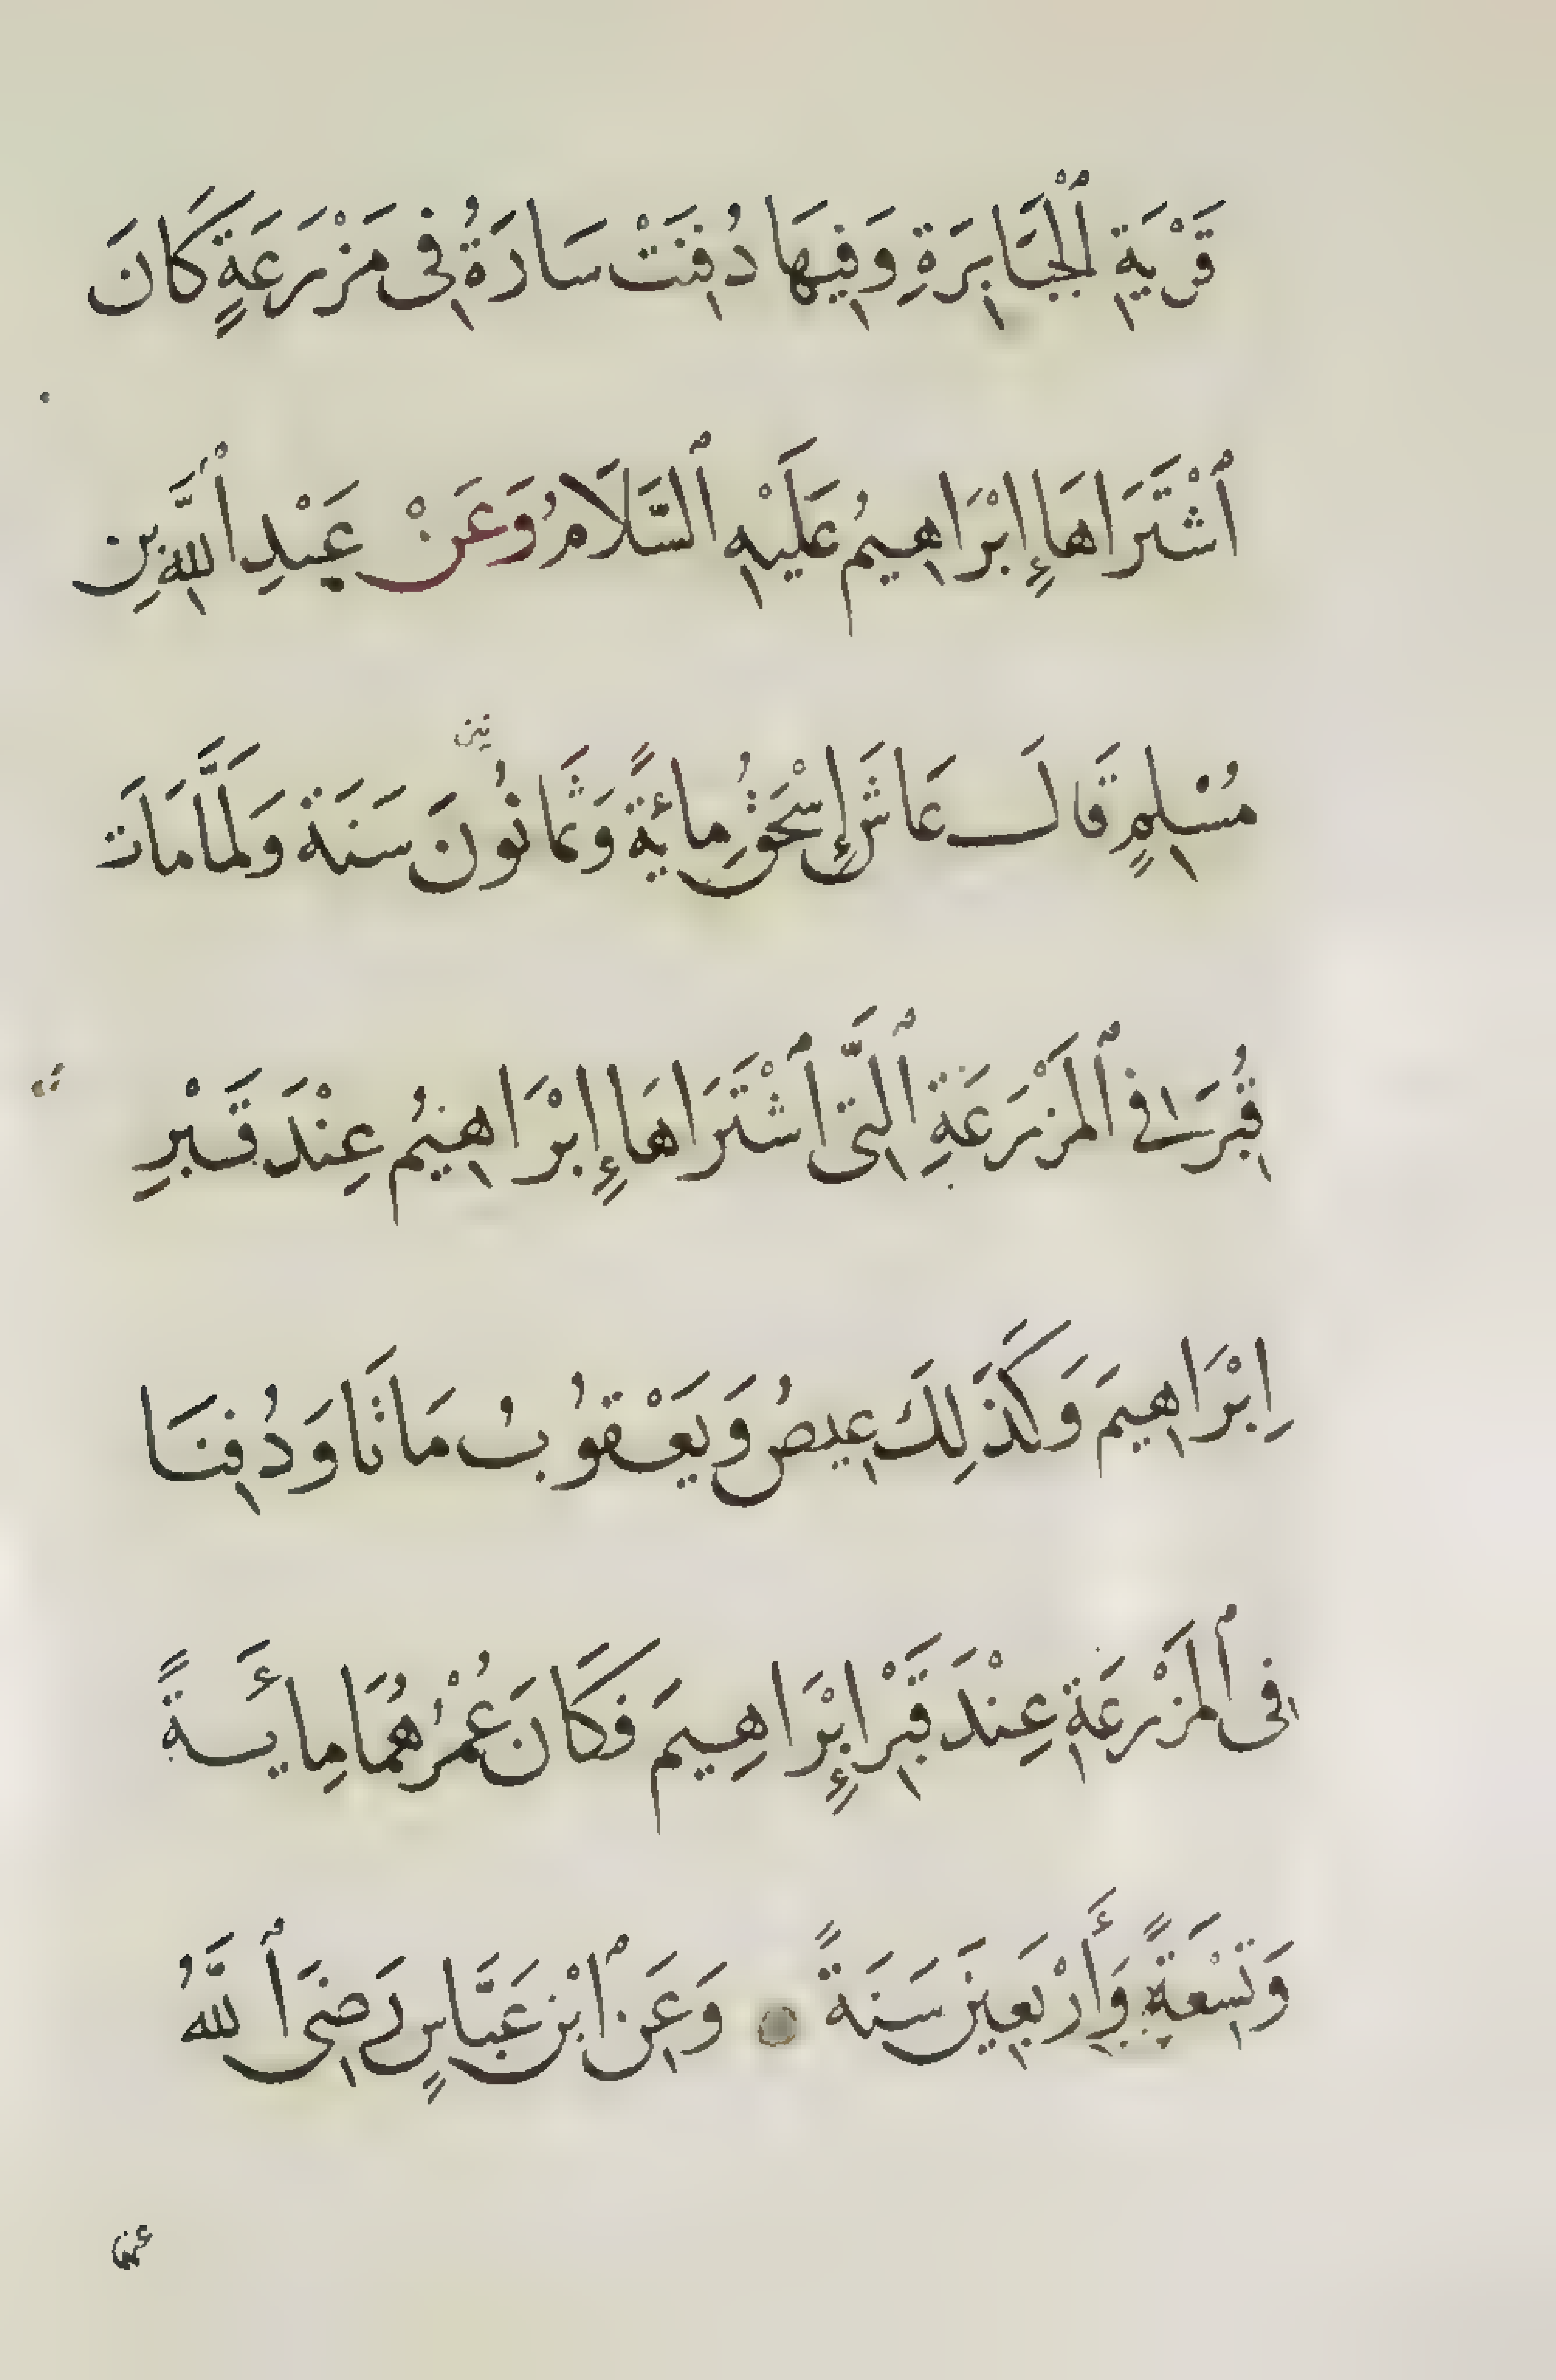 قَرْيَةِ ٱلْجَبَّابِرَةِ وَفِيهَا دُفِنَتْ سَارَةُ فِى مَزْرَعَةٍ كَانَ
ٱشْتَرَاهَا إِبْرَاهِيمُ عَلَيْهِ ٱلسَّلَامُ وَعَنْ عَبْدِ ٱللَّهِ بنِ
مُسْلِمٍ قَالَ عَاشَ إِسْحَقُ مِائَةً وَثَمَانُونَ سَنَةً وَلَمَّا مَاتَ
ين
قُبِرَ فِى ٱلْمَزْرَعَةِ ٱلَّتِى ٱشْتَرَاهَا إِبْرَاهِيمُ عِنْدَ قَبْرِ
اِبْرَاهِيمَ وَكَذَلِكَ عِيصُ وَيَعْقُوبُ مَاتَا وَدُفِنَا
فِى ٱلْمَزْرَعَةِ عِنْدَ قَبْرِ إِبْرَاهِيمَ فَكَانَ عُمْرُهُمَا مِائَةً
وَتِسْعَةً وَأَرْبَعِينَ سَنَةً وَعَنِ ٱبْنِ عَبَّاسٍ رَضِىَ ٱللَّهُ
عنهما